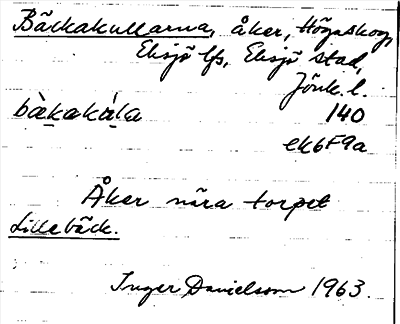 Bäckakullarna, åker, Högaskog,
Eksjö lfs, Eksjö stad,
Jönk. l.
bàkakáka 140
ek6F9a
Åker nära torpet
Lillebäck.
Inger Danielsson 1963.